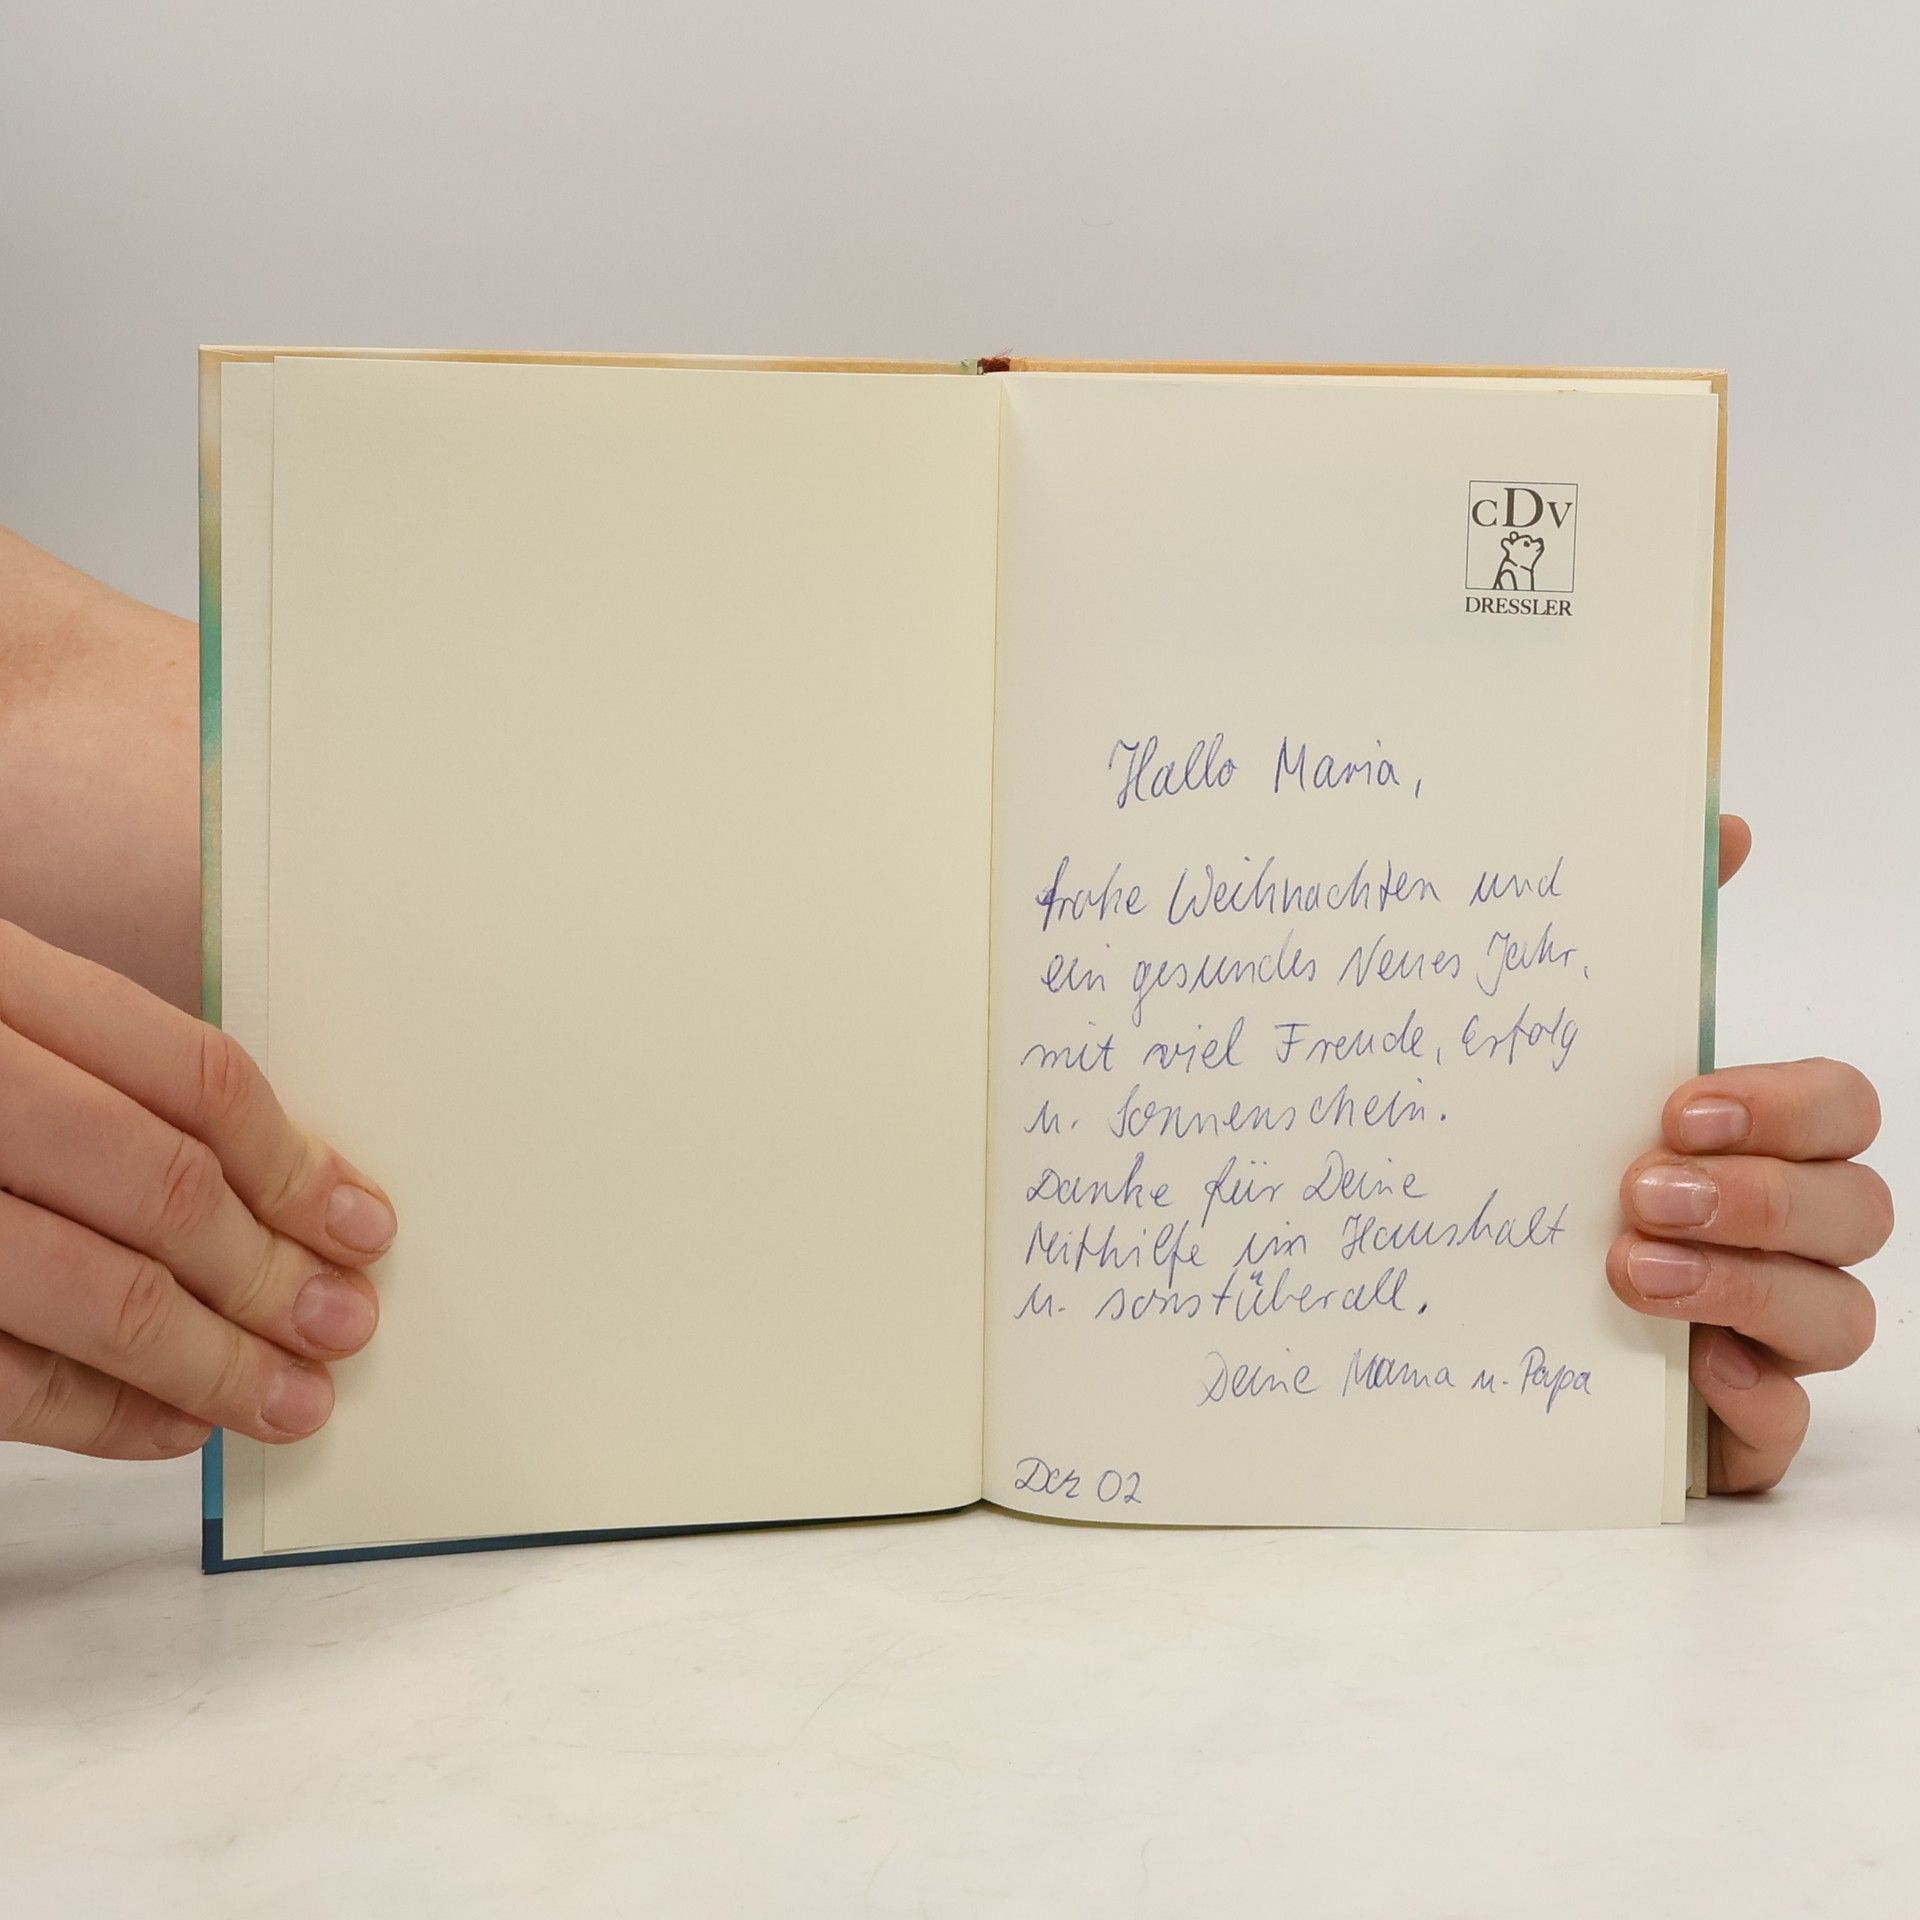 CDV
DRESSLER
Hallo Maria,
frohe Weihnachten und
ein gesundes Neues Jahr,
mit viel Freude, Erfolg
u. Sonnenschein.
Danke für Deine
Mithilfe im Haushalt
u. sonst überall.
Deine Mama u. Papa
Dez 02